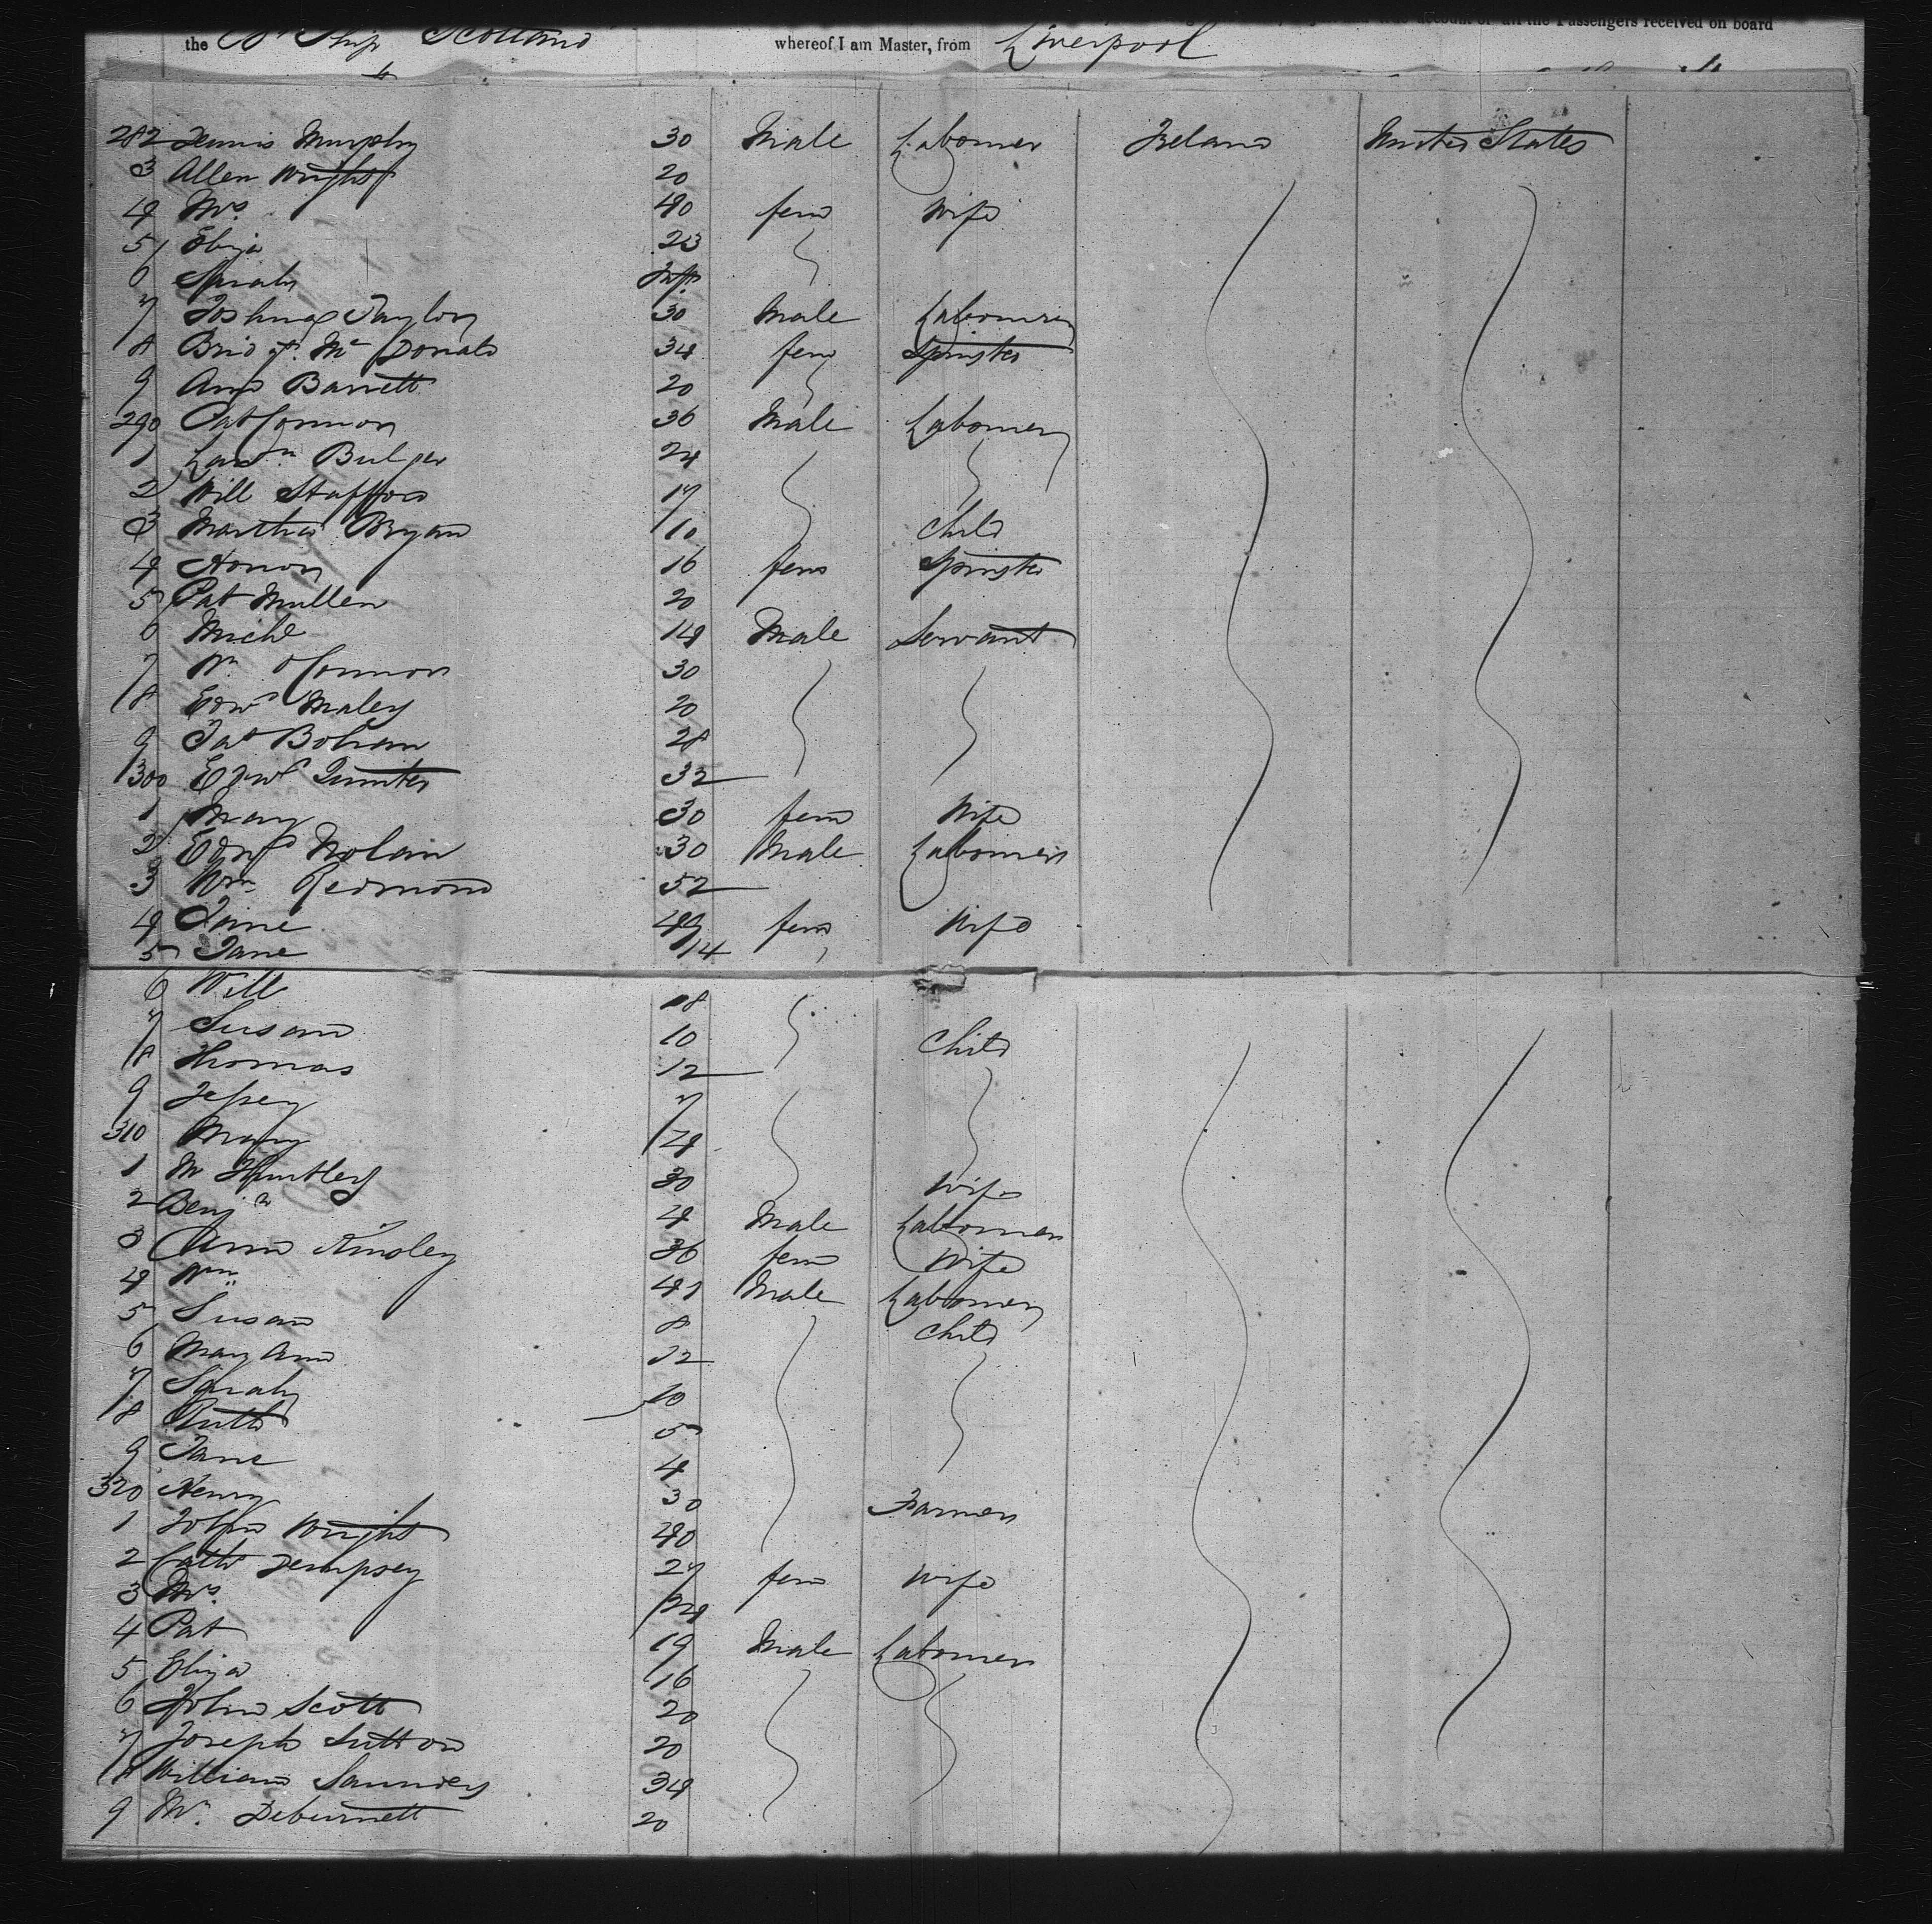 account of all the Passengers received on board
the Br Ship Scotland whereof I am Master, from Liverpool
282 Dennis Murphy 30 Male Labourer Ireland United States
3 Allen Wright 20
4 Mrs. 40 fem Wife
5 Eliza 23
6 Sarah Inft.
7 Joshua Taylor 30 Male Labourer
8 Bridgt. Mc Donald 34 fem Spinster
9 Ann Barrett 20
290 Pat Connor 36 Male Labourer
1 Lawn. Bulger 24
2 Will Stafford 17
3 Martha Bryan 10 Child
4 Honor 16 fem Spinster
5 Pat Mullen 20
6 Michl 14 Male Servant
7 Wm O'Connor 30
8 Edwd Maley 20
9 Jas 28
300 Edwd 32
1 Mary 30 fem Wife
2 Edwd Nolan 30 Male Labourer
3 Wm. Redmond 52
4 Jane 49 fem Wife
5 Jane 14
6 Will 18
7 Susan 10 Child
8 Thomas 12
9 Jessey 7
310 Mary 4
1 M Huntley 30 Wife
2 Benjn 4 Male Labourer
3 Ann Kinsley 36 fem Wife
4 Wm 41 Male Labourer
5 Susan 8 Child
6 Mary Ann 12
7 Sarah 10
8 Ruth 5
9 Jane 4
320 Henry 30 Farmer
1 John Wright 40
2 Cath Dempsey 27 fem Wife
3 Mrs. 24
4 Pat 19 Male Labourer
5 Eliza 16
6 John Scott 20
7 Joseph Sutton 20
8 William Saunders 34
9 Mr. Deburnett 20